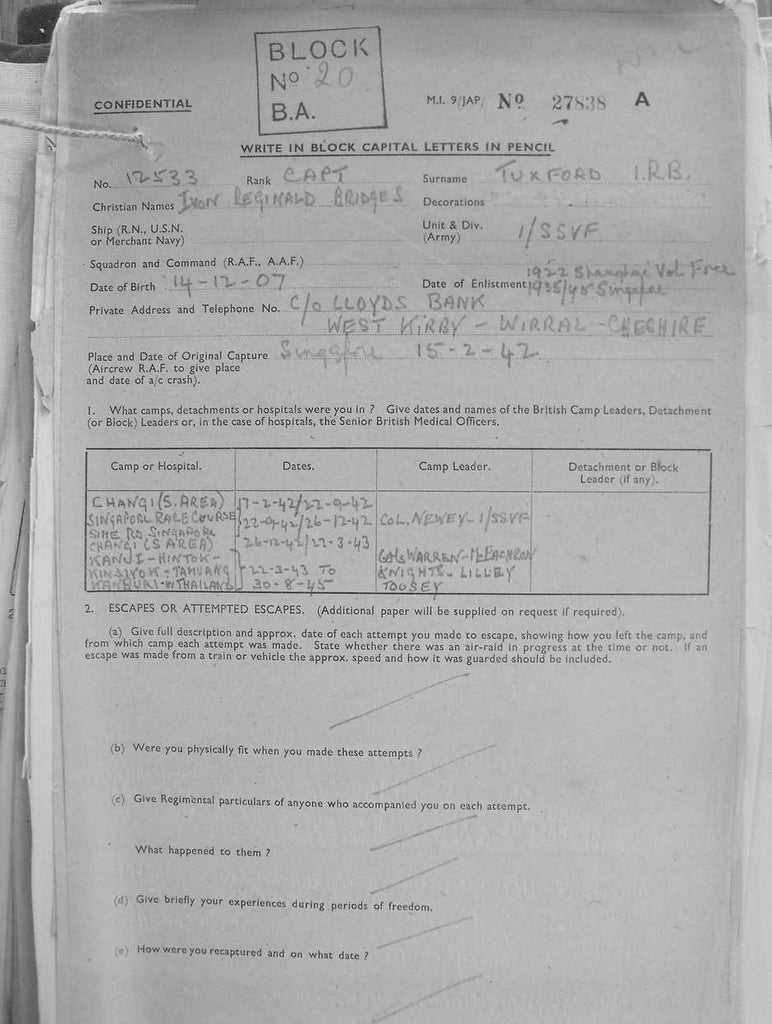 BLOCK
No 20
B.A.
CONFIDENTIAL
M.I. 9/JAP/ No 27838 A
WRITE IN BLOCK CAPITAL LETTERS IN PENCIL
No. 12533 Rank CAPT Surname TUXFORD I.R.B.
Christian Names IVON REGINALD BRIDGES Decorations
Ship (R.N., U.S.N. or Merchant Navy) Unit & Div. (Army) 1/SSVF
Squadron and Command (R.A.F., A.A.F.)
Date of Birth 14-12-07 Date of Enlistment 1922 Shanghai Vol. Force
1938/45 Singapore
Private Address and Telephone No. C/O LLOYDS BANK
WEST KIRBY - WIRRAL - CHESHIRE
Place and Date of Original Capture Singapore 15-2-42
(Aircrew R.A.F. to give place
and date of a/c crash).
1. What camps, detachments or hospitals were you in ? Give dates and names of the British Camp Leaders, Detachment
(or Block) Leaders or, in the case of hospitals, the Senior British Medical Officers.
Camp or Hospital. Dates. Camp Leader. Detachment or Block
Leader (if any).
CHANGI (S. AREA) 17-2-42/22-9-42
SINGAPORE RACE COURSE 22-9-42/26-12-42 COL. NEWEY - 1/SSVF
SIME RD SINGAPORE
CHANGI (S AREA) 26-12-42/22-3-43
KANUI - HINTOK - COLS WARREN - McEACHRON
KINSIYOK - TAMUANG 22-3-43 TO KNIGHTS - LILLEY
KANBURI - IN THAILAND 30-8-45 TOOSEY
2. ESCAPES OR ATTEMPTED ESCAPES. (Additional paper will be supplied on request if required).
(a) Give full description and approx. date of each attempt you made to escape, showing how you left the camp, and
from which camp each attempt was made. State whether there was an air-raid in progress at the time or not. If an
escape was made from a train or vehicle the approx. speed and how it was guarded should be included.
(b) Were you physically fit when you made these attempts ?
(c) Give Regimental particulars of anyone who accompanied you on each attempt.
What happened to them ?
(d) Give briefly your experiences during periods of freedom.
(e) How were you recaptured and on what date ?